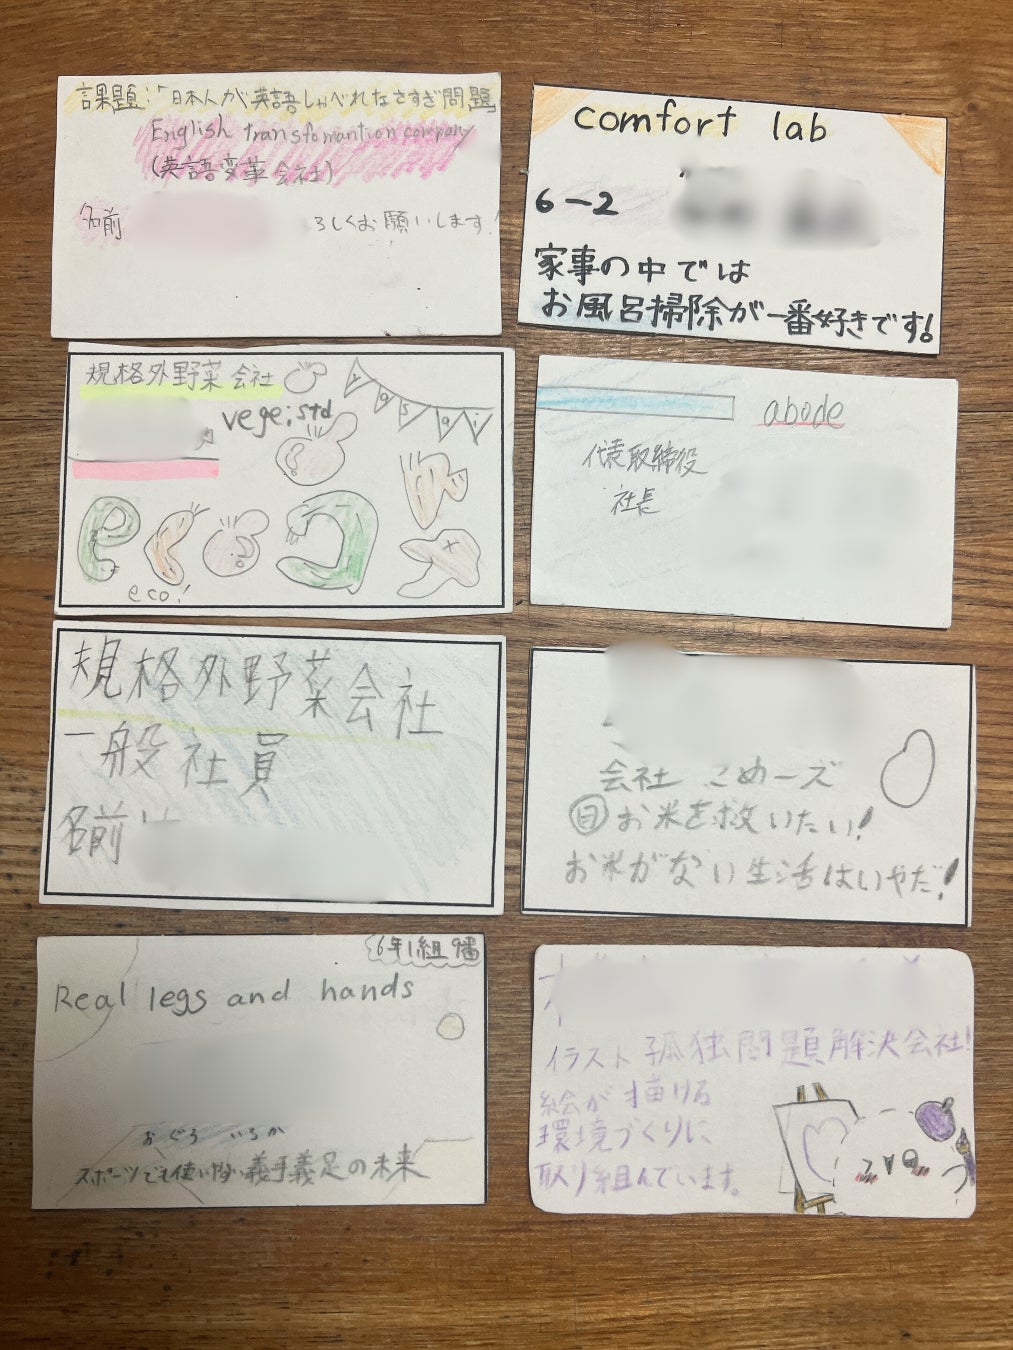 課題:「日本人が英語しゃべれなさすぎ問題」
English transfomantion company
(英語変革会社)
名前 ろしくお願いします!
comfort lab
6-2
家事の中では
お風呂掃除が一番好きです!
規格外野菜会社
vege;std
yasai
eco!
abode
代表取締役
社長
規格外野菜会社
一般社員
名前は
会社 こめーズ
目お米を救いたい!
お米がない生活はいやだ!
6年1組9番
Real legs and hands
おぐろ いちか
スポーツでも使い易い義手義足の未来
イラスト孤独問題解決会社!
絵が描ける
環境づくりに
取り組んでいます。